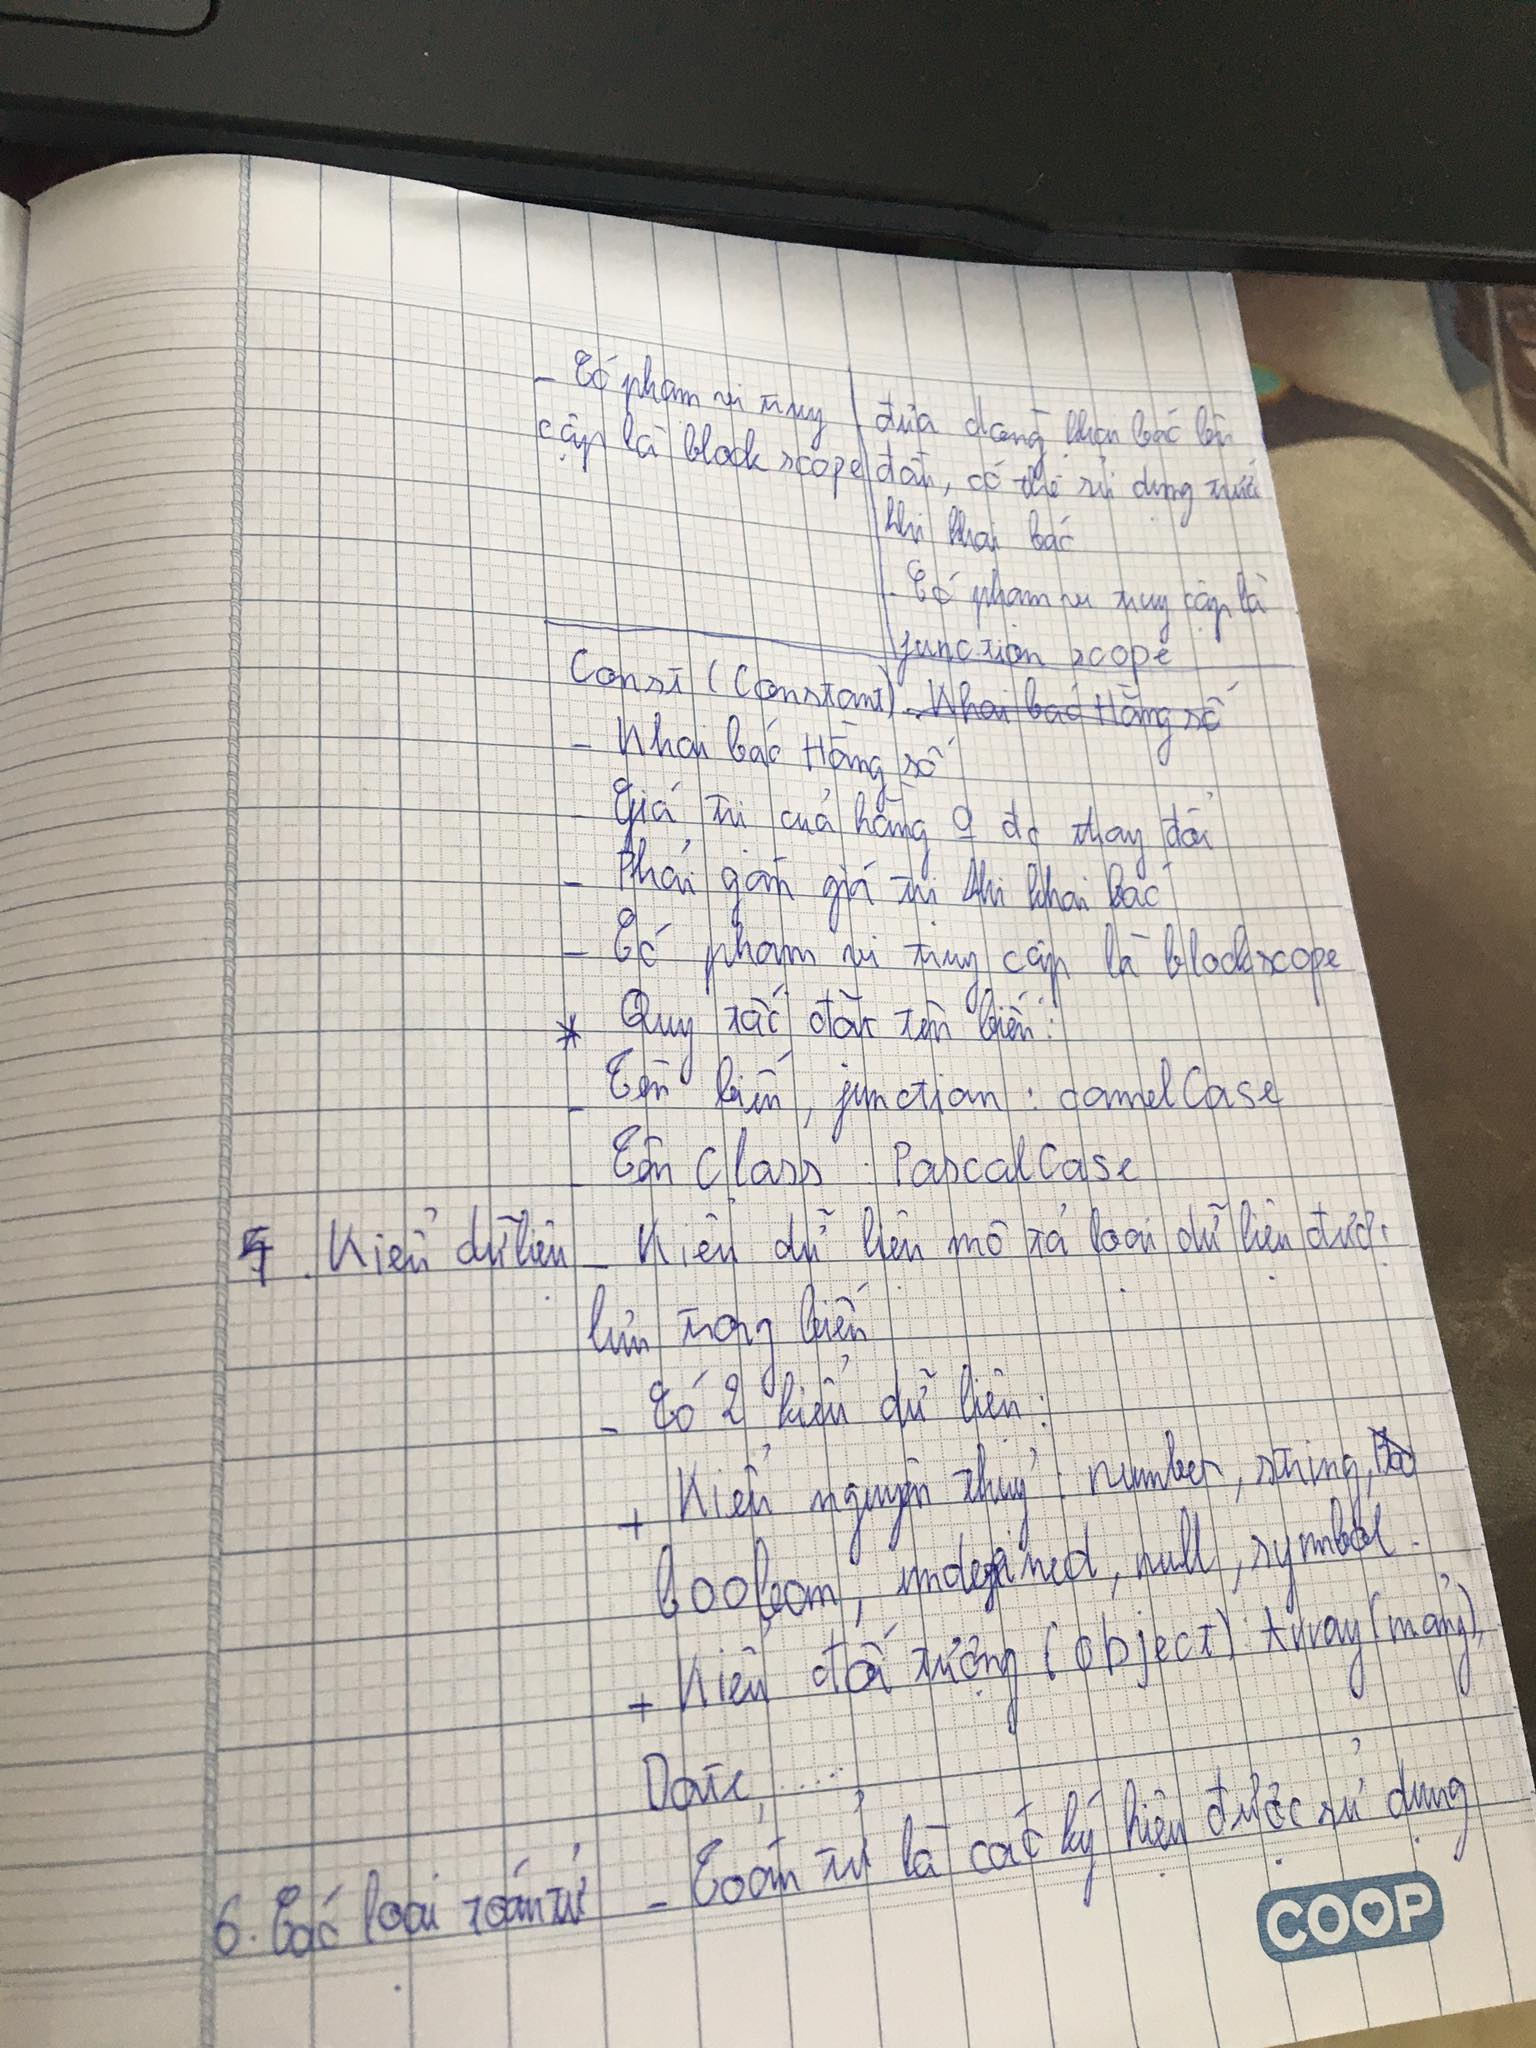 - Có phạm vi truy
cập là block scope
đưa dòng khai báo lên
đầu, có thể sử dụng trước
khi khai báo
- Có phạm vi truy cập là
function scope
Const (Constant) - Khai báo Hằng số
- Khai báo Hằng số
- Giá trị của hằng 0 đc thay đổi
- Phải gán giá trị khi khai báo
- Có phạm vi truy cập là block scope
* Quy tắc đặt tên biến:
- Tên biến, function: camelCase
- Tên Class: PascalCase
5. Kiểu dữ liệu - Kiểu dữ liệu mô tả loại dữ liệu được
lưu trong biến
- Có 2 kiểu dữ liệu:
+ Kiểu nguyên thủy: number, string,
boolean, undefined, null, symbol.
+ Kiểu đối tượng (object): Array (mảng),
Date, .....
6. Các loại toán tử - Toán tử là các ký hiệu được sử dụng
COOP